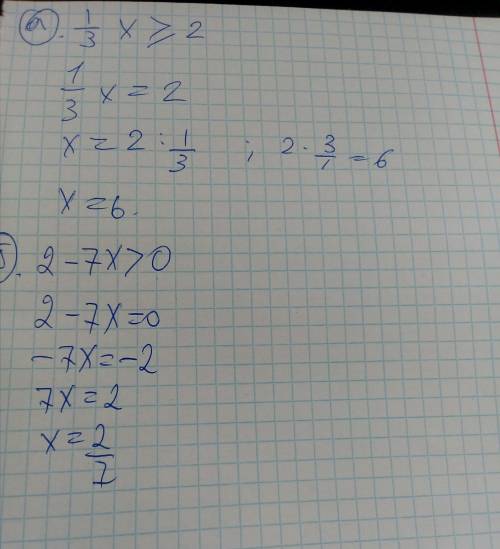 а. 1/3 x ⩾ 2
1/3 x = 2
x = 2 : 1/3 ; 2 · 3/1 = 6
x = 6.
б. 2 - 7x > 0
2 - 7x = 0
-7x = -2
7x = 2
x = 2/7